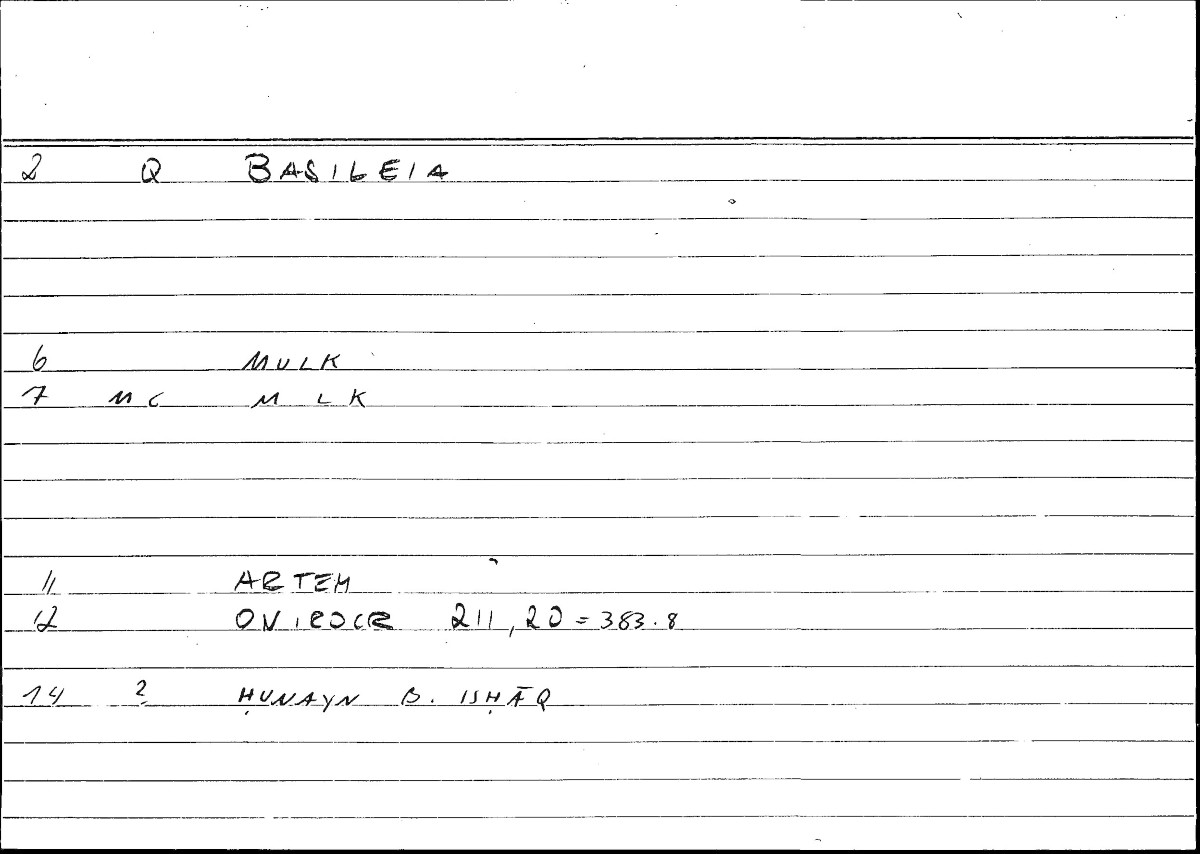 2 Q BASILEIA
6 MULK
7 MC M LK
11 ARTEM
12 ONIROCR 211,20 = 383.8
14 2 ḤUNAYN B. ISḤĀQ